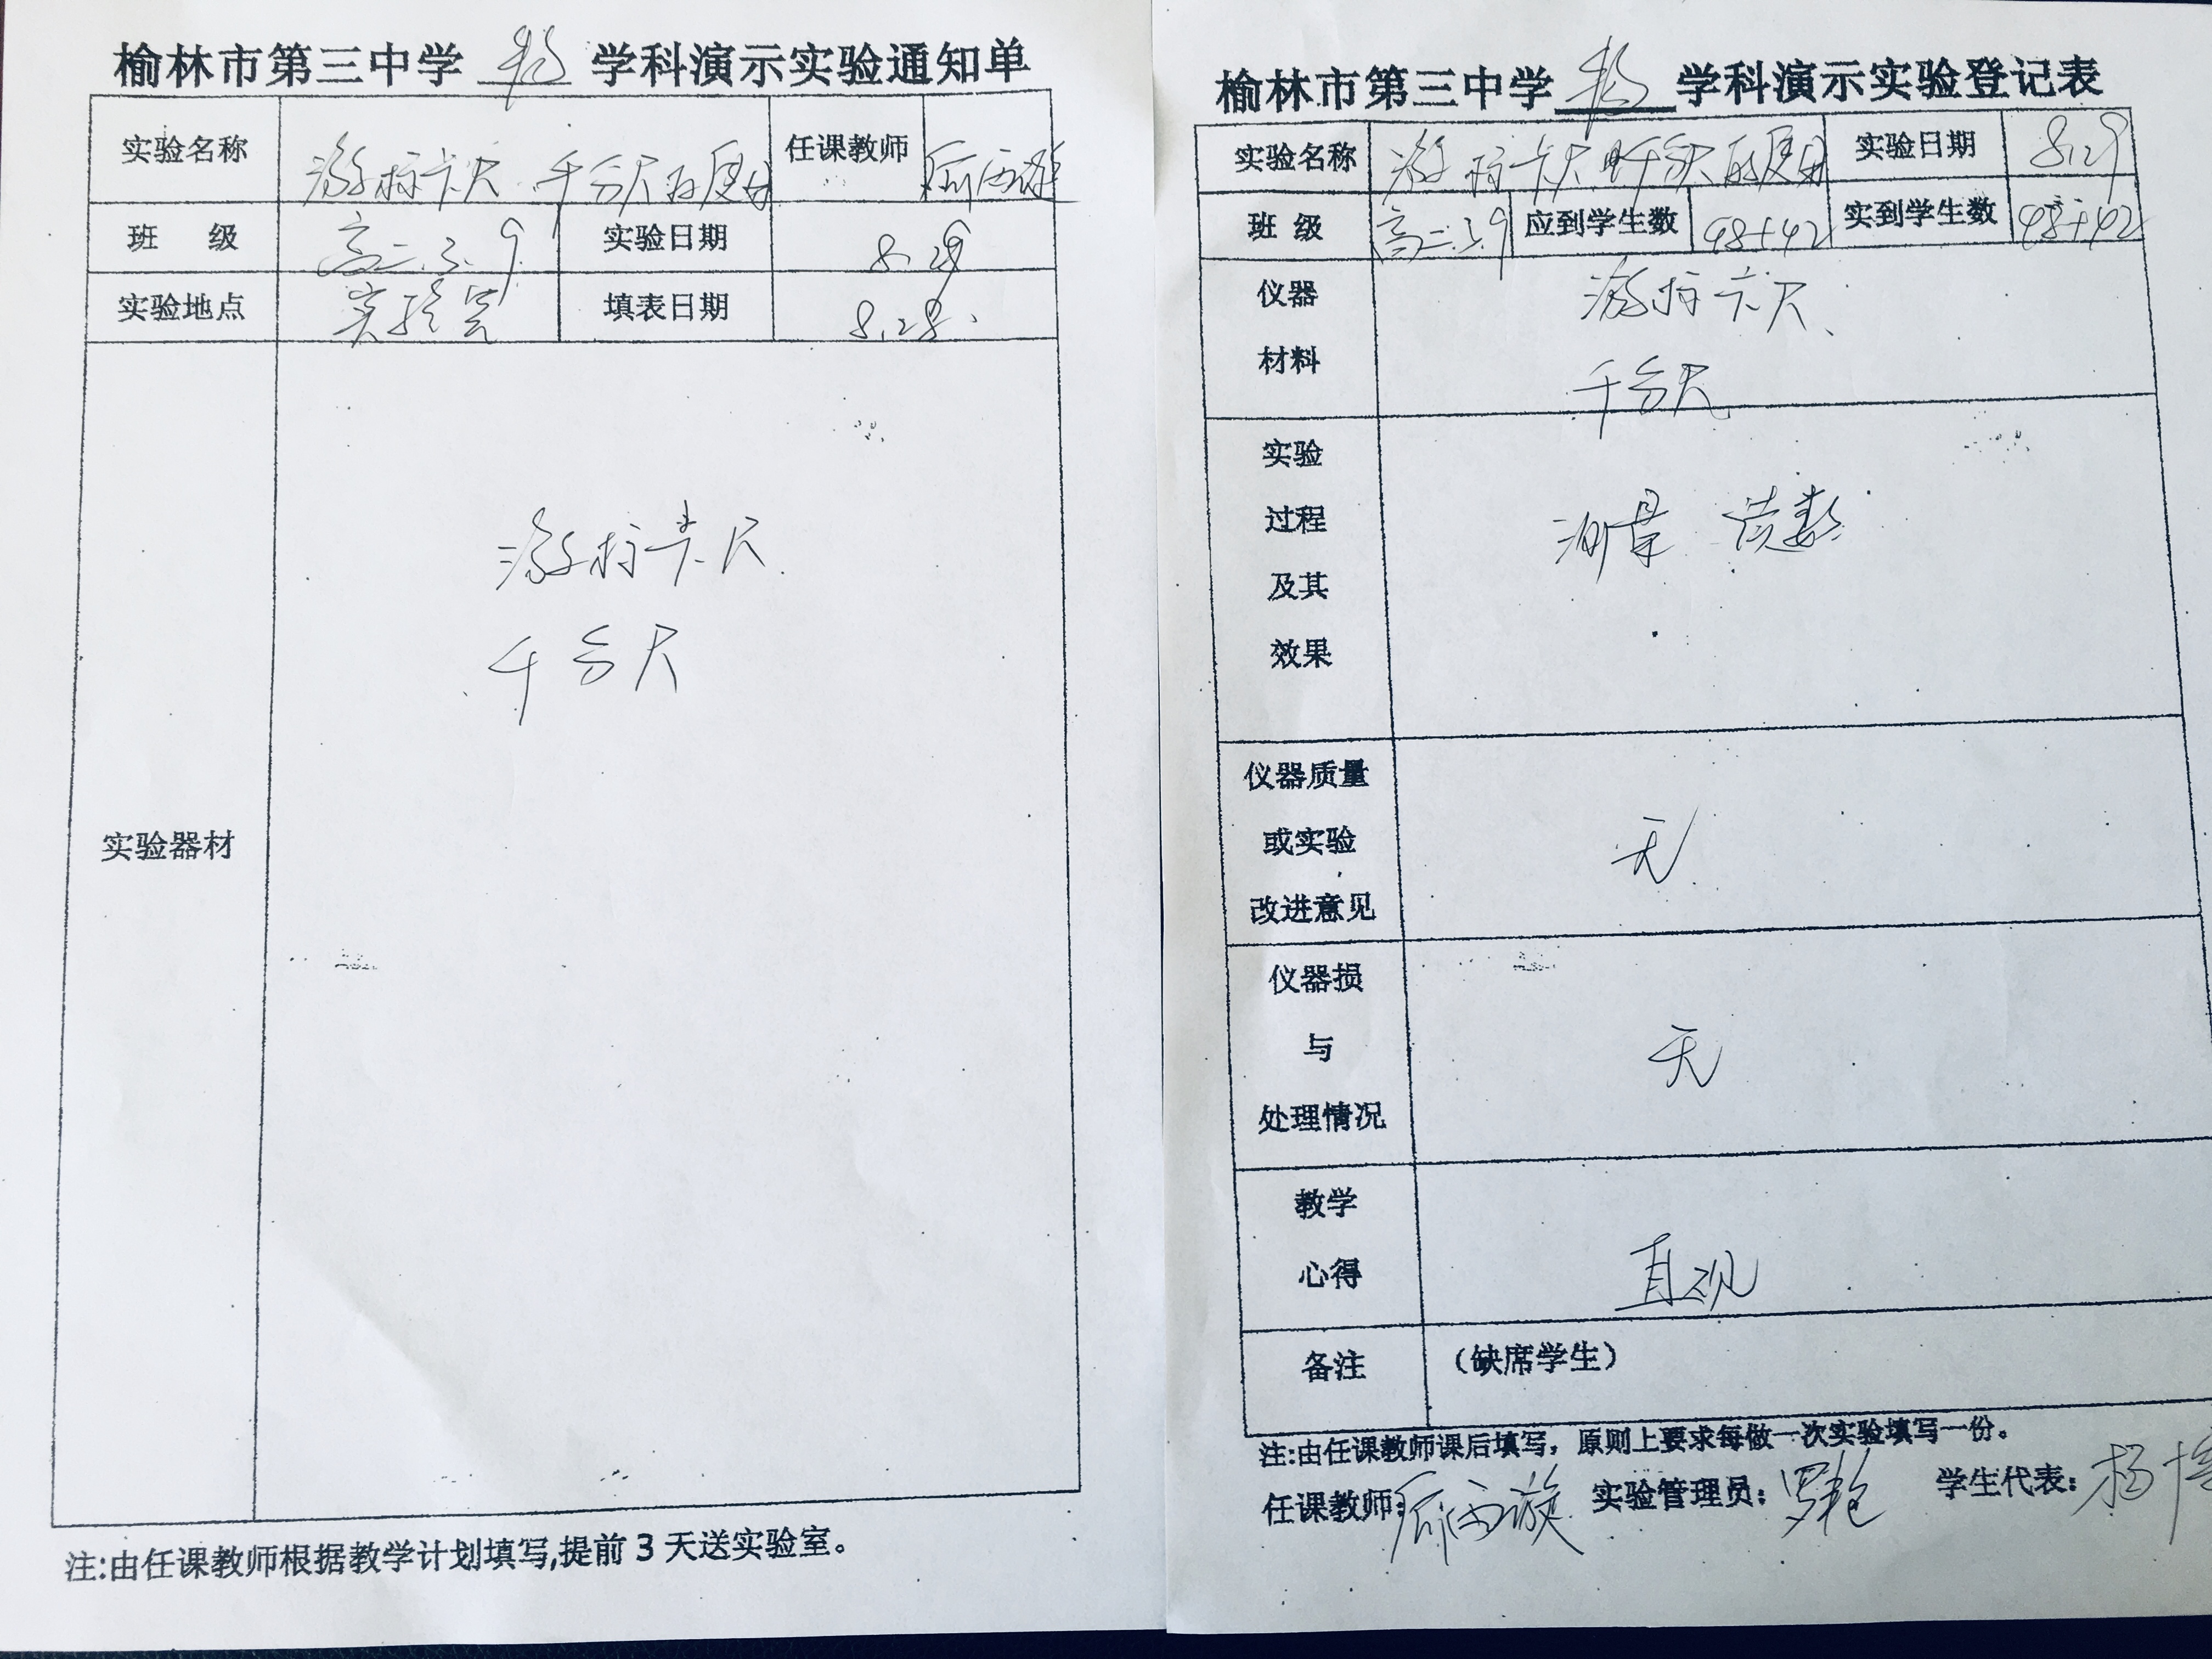 榆林市第三中学 物 学科演示实验通知单
实验名称 游标卡尺 千分尺的使用 任课教师
班 级 高二.3.9 实验日期 8.29
实验地点 实验室 填表日期 8.28.
实验器材
游标卡尺
千分尺
注:由任课教师根据教学计划填写,提前 3 天送实验室。
榆林市第三中学 物 学科演示实验登记表
实验名称 游标卡尺 千分尺的使用 实验日期 8.29
班 级 高二.3.9 应到学生数 48+42 实到学生数 48+42
仪器
材料
游标卡尺、
千分尺
实验
过程
及其
效果
测量 读数
仪器质量
或实验
改进意见
无
仪器损
与
处理情况
无
教学
心得
直观
备注 (缺席学生)
注:由任课教师课后填写，原则上要求每做一次实验填写一份。
任课教师: 实验管理员: 学生代表: 杨